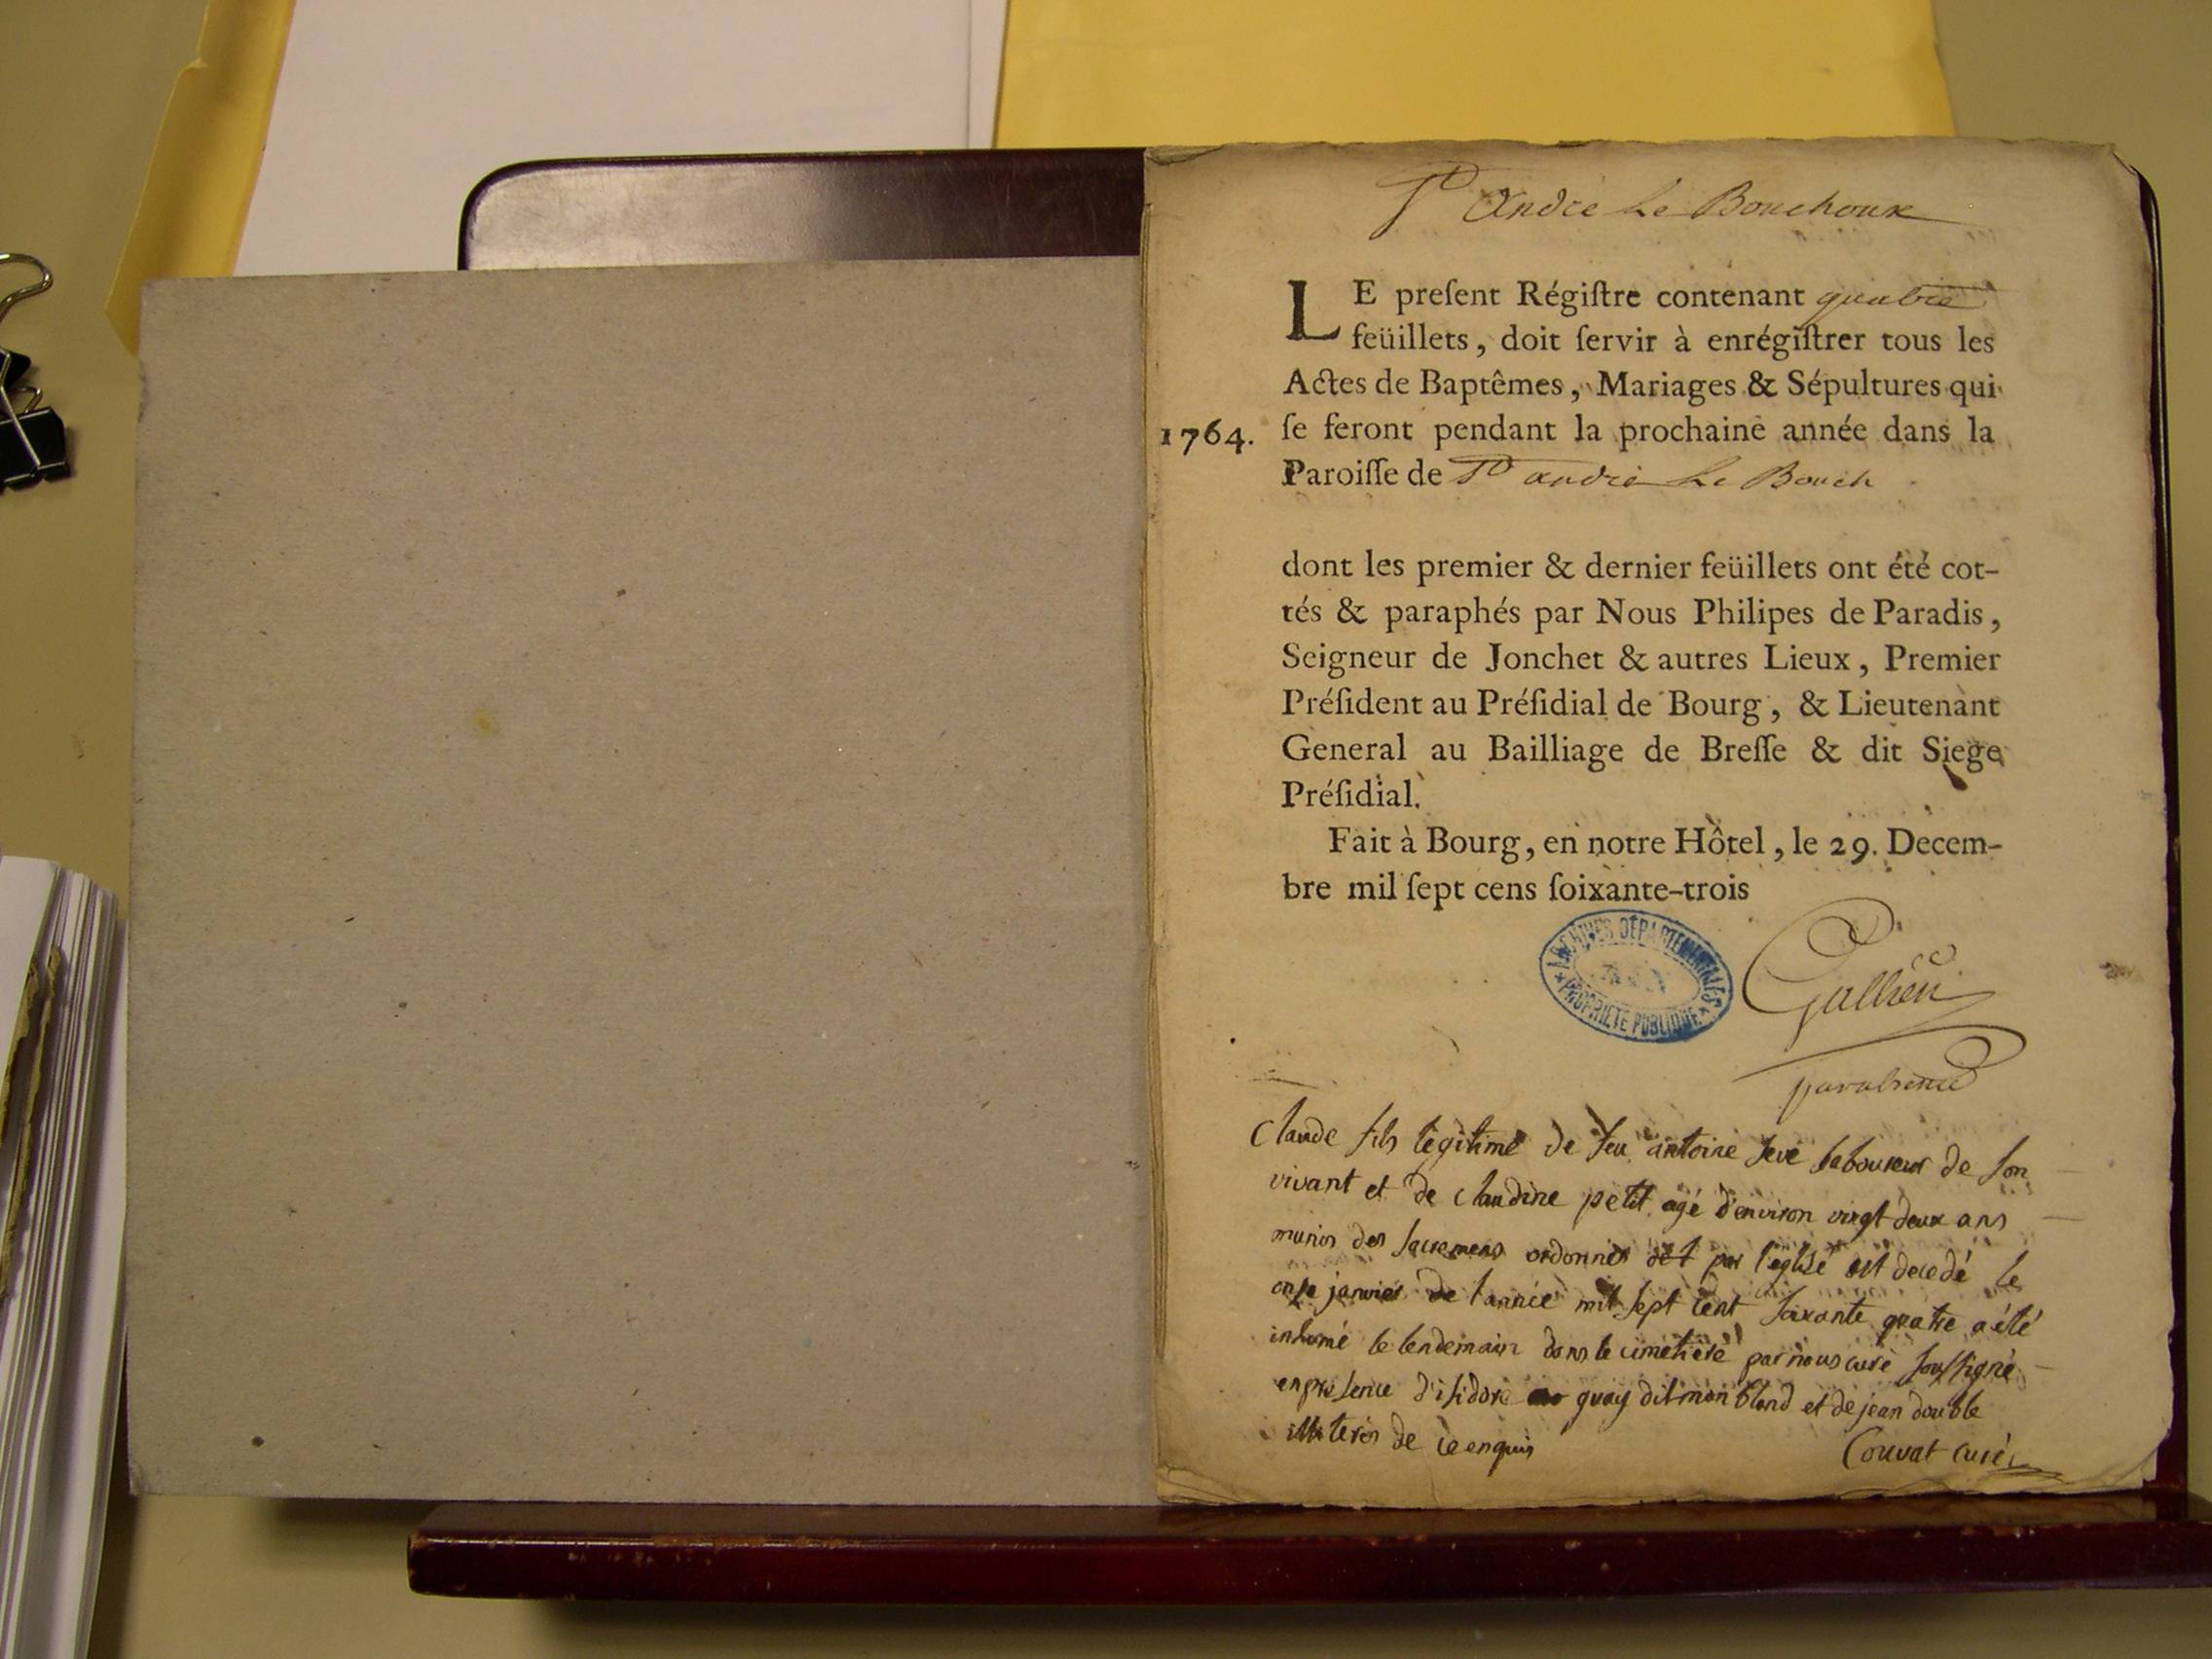 St André Le Bouchoux
LE preſent Régiſtre contenant quatre
feüillets, doit ſervir à enrégiſtrer tous les
Actes de Baptêmes, Mariages & Sépultures qui
1764. ſe feront pendant la prochaine année dans la
Paroiſſe de St andré Le Bouch
dont les premier & dernier feüillets ont été cot-
tés & paraphés par Nous Philipes de Paradis,
Seigneur de Jonchet & autres Lieux, Premier
Préſident au Préſidial de Bourg, & Lieutenant
General au Bailliage de Breſſe & dit Siege
Préſidial.
Fait à Bourg, en notre Hôtel, le 29. Decem-
bre mil ſept cens ſoixante-trois
ARCHIVES DÉPARTEMENTALES
PROPRIÉTÉ PUBLIQUE
Gallien
Claude fils légitime de feu antoine seve laboureur de son
vivant et de claudine petit agé d'environ vingt deux ans
munis des sacremens ordonnés par l'église est decedé le
onze janvier de l'année mil sept cent soixante quatre a été
inhumé le lendemain dans le cimetiere par nous curé soussigné
en presence d'isidore guay dit monblond et de jean double
illiterés de ce enquis
Couvat curé